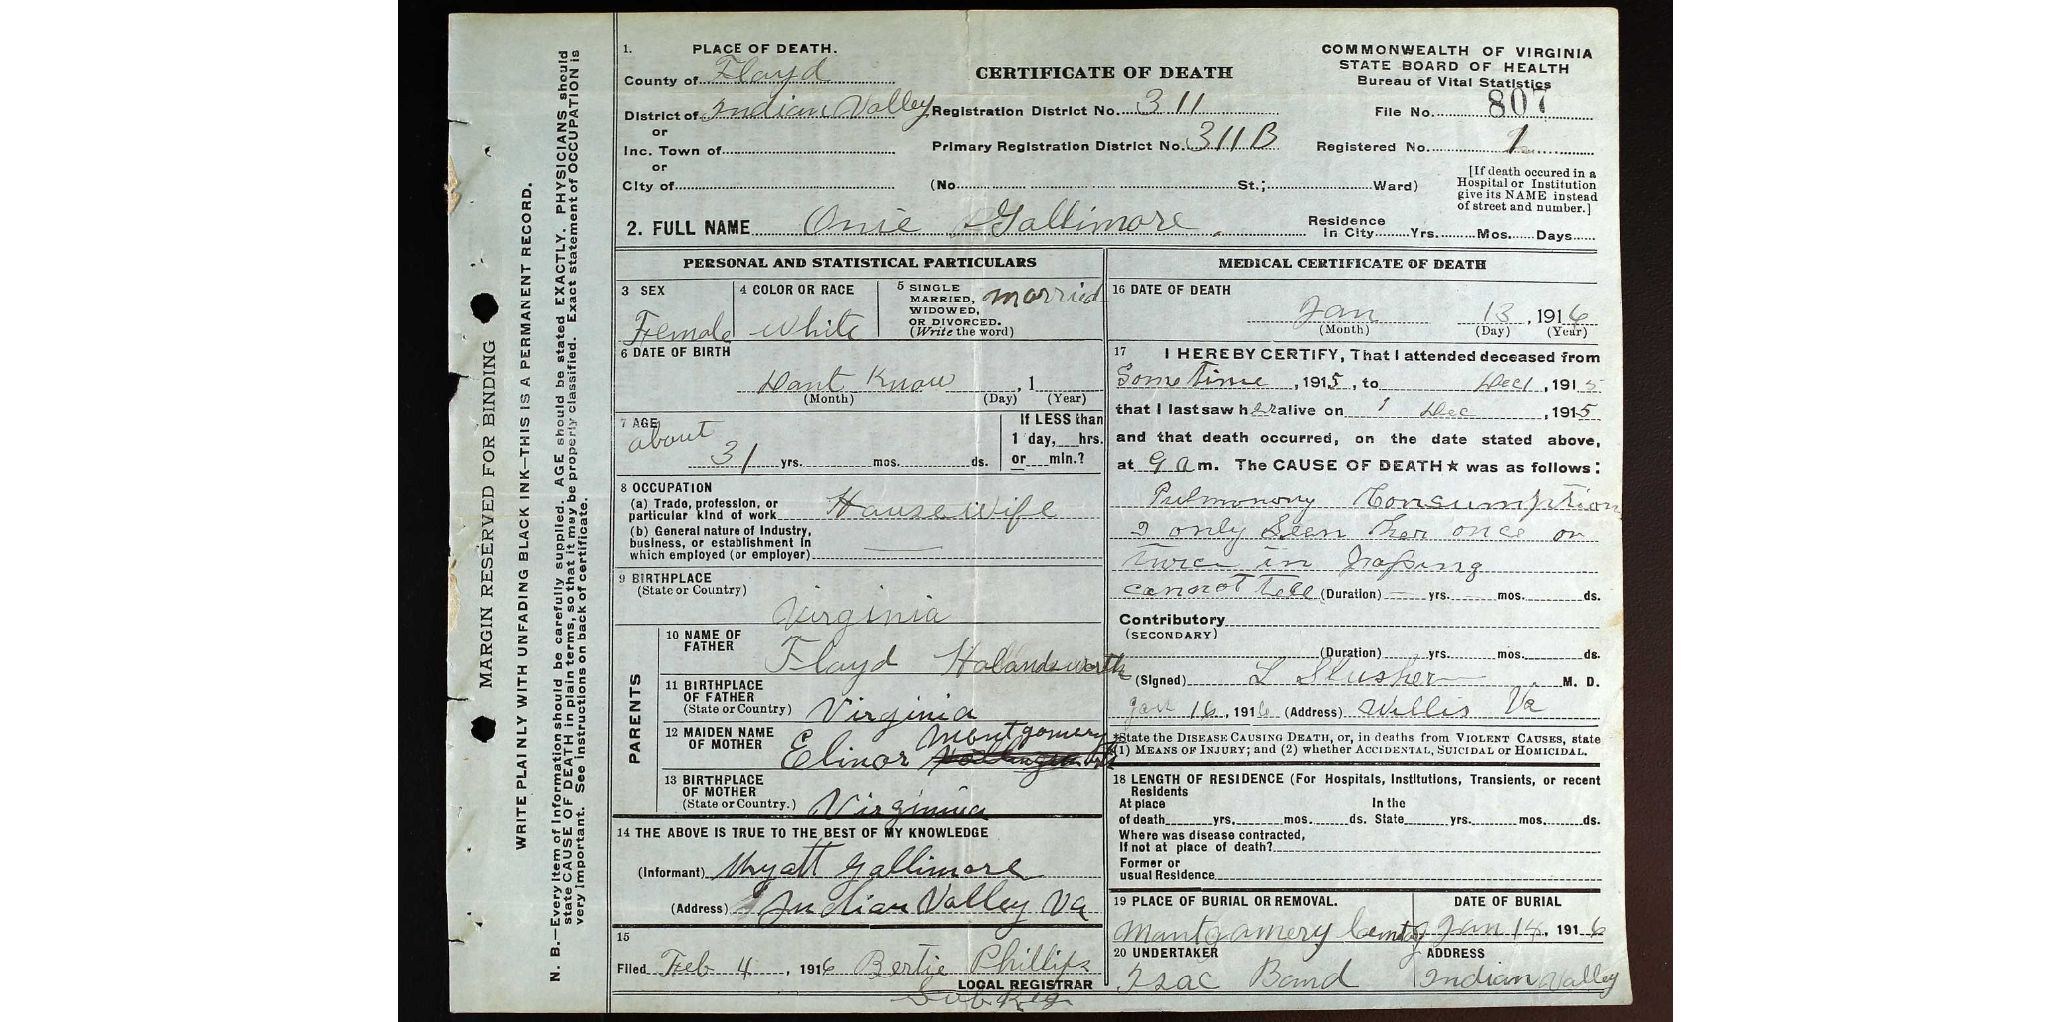 MARGIN RESERVED FOR BINDING
WRITE PLAINLY WITH UNFADING BLACK INK—THIS IS A PERMANENT RECORD.
N. B.—Every item of information should be carefully supplied. AGE should be stated EXACTLY. PHYSICIANS should
state CAUSE OF DEATH in plain terms, so that it may be properly classified. Exact statement of OCCUPATION is
very important. See instructions on back of certificate.
1. PLACE OF DEATH.
County of Floyd
District of Indian Valley
or
Inc. Town of
or
City of
CERTIFICATE OF DEATH
Registration District No. 311
Primary Registration District No. 311B
(No St.; Ward)
COMMONWEALTH OF VIRGINIA
STATE BOARD OF HEALTH
Bureau of Vital Statistics
File No. 807
Registered No. 1
[If death occured in a
Hospital or Institution
give its NAME instead
of street and number.]
2. FULL NAME Onie Gallimore
Residence
In City Yrs. Mos. Days
PERSONAL AND STATISTICAL PARTICULARS
3 SEX
Female
4 COLOR OR RACE
White
5 SINGLE
MARRIED, married
WIDOWED,
OR DIVORCED.
(Write the word)
6 DATE OF BIRTH
Dont Know , 1
(Month) (Day) (Year)
7 AGE
about
31 yrs. mos. ds.
If LESS than
1 day, hrs.
or min.?
8 OCCUPATION
(a) Trade, profession, or
particular kind of work House wife
(b) General nature of Industry,
business, or establishment in
which employed (or employer)
9 BIRTHPLACE
(State or Country)
Virginia
PARENTS
10 NAME OF
FATHER
Floyd Holandsworth
11 BIRTHPLACE
OF FATHER
(State or Country) Virginia
12 MAIDEN NAME
OF MOTHER
Elinor Montgomery
13 BIRTHPLACE
OF MOTHER
(State or Country.) Virginia
14 THE ABOVE IS TRUE TO THE BEST OF MY KNOWLEDGE
(Informant) Wyatt Gallimore
(Address) Indian Valley Va
15
Filed Feb 4, 1916 Bertie Phillips
LOCAL REGISTRAR
Sub Reg
MEDICAL CERTIFICATE OF DEATH
16 DATE OF DEATH
Jan 13, 1916
(Month) (Day) (Year)
17 I HEREBY CERTIFY, That I attended deceased from
Some time, 1915, to Dec 1, 1915
that I last saw her alive on 1 Dec, 1915
and that death occurred, on the date stated above,
at 9 a m. The CAUSE OF DEATH★ was as follows:
Pulmonory Consumption
I only Seen her once or
twice in
cannot tell (Duration) yrs. mos. ds.
Contributory
(SECONDARY)
(Duration) yrs. mos. ds.
(Signed) L Slusher M. D.
Jan 16, 1916 (Address) Willis Va
*State the DISEASE CAUSING DEATH, or, in deaths from VIOLENT CAUSES, state
(1) MEANS OF INJURY; and (2) whether ACCIDENTAL, SUICIDAL or HOMICIDAL.
18 LENGTH OF RESIDENCE (For Hospitals, Institutions, Transients, or recent
Residents
At place In the
of death yrs. mos. ds. State yrs. mos. ds.
Where was disease contracted,
If not at place of death?
Former or
usual Residence
19 PLACE OF BURIAL OR REMOVAL. DATE OF BURIAL
Montgomery Jan 14, 1916
20 UNDERTAKER ADDRESS
Isac Bond Indian Valley